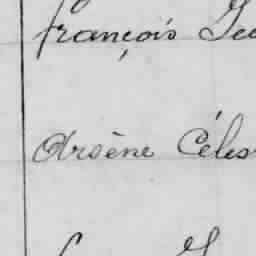 françois
Arsène Céles